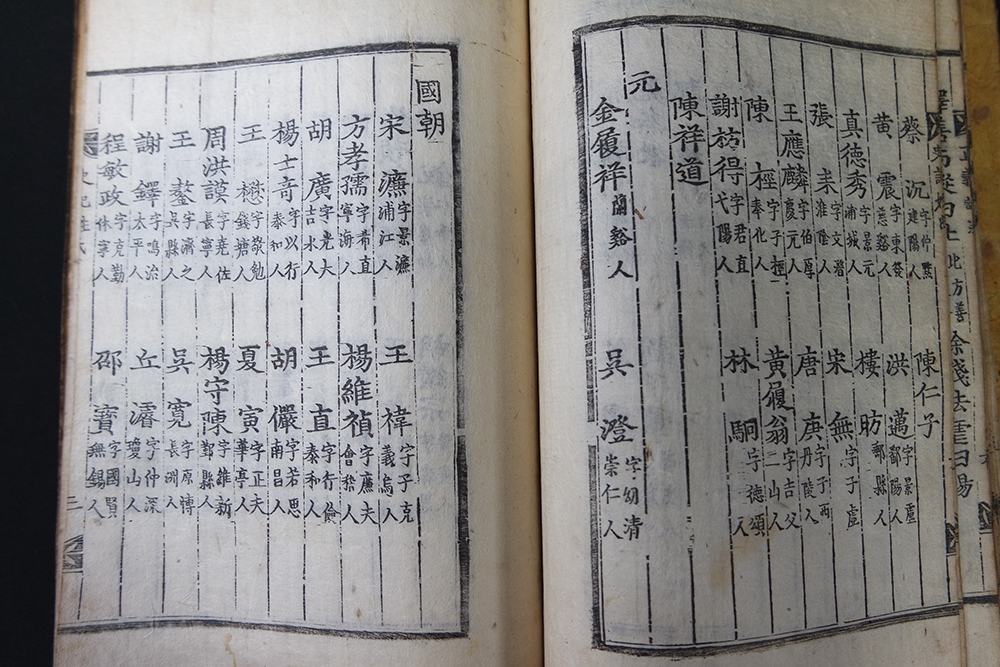 蔡沉 字仲黙 建陽人 陳仁子
黄震 字東發 慈谿人 洪邁 字景盧 鄱陽人
真德秀 字景元 浦城人 樓昉 鄞縣人
張耒 字文潛 淮陰人 宋無 字子虛
王應麟 字伯厚 慶元人 唐庚 字子西 丹陵人
陳桱 字子桱 奉化人 黄履翁 字吉父 二山人
謝枋得 字君直 弋陽人 林駉 字德頌 人
陳祥道
元
金履祥 蘭谿人 吳澄 字幼清 崇仁人
國朝
宋濂 字景濂 浦江人 王禕 字子充 義烏人
方孝孺 字希直 寧海人 楊維禎 字廉夫 會稽人
胡廣 字光大 吉水人 王直 字行儉 泰和人
楊士奇 字以行 泰和人 胡儼 字若思 南昌人
王懋 字敬勉 錢塘人 夏寅 字正夫 華亭人
周洪謨 字堯佐 長寧人 楊守陳 字維新 鄞縣人
王鏊 字濟之 吳縣人 吳寬 字原博 長洲人
謝鐸 字鳴治 太平人 丘濬 字仲深 瓊山人
程敏政 字克勤 休寧人 邵寶 字國賢 無錫人